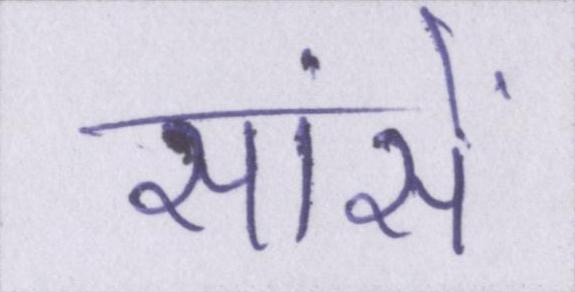 सांसें